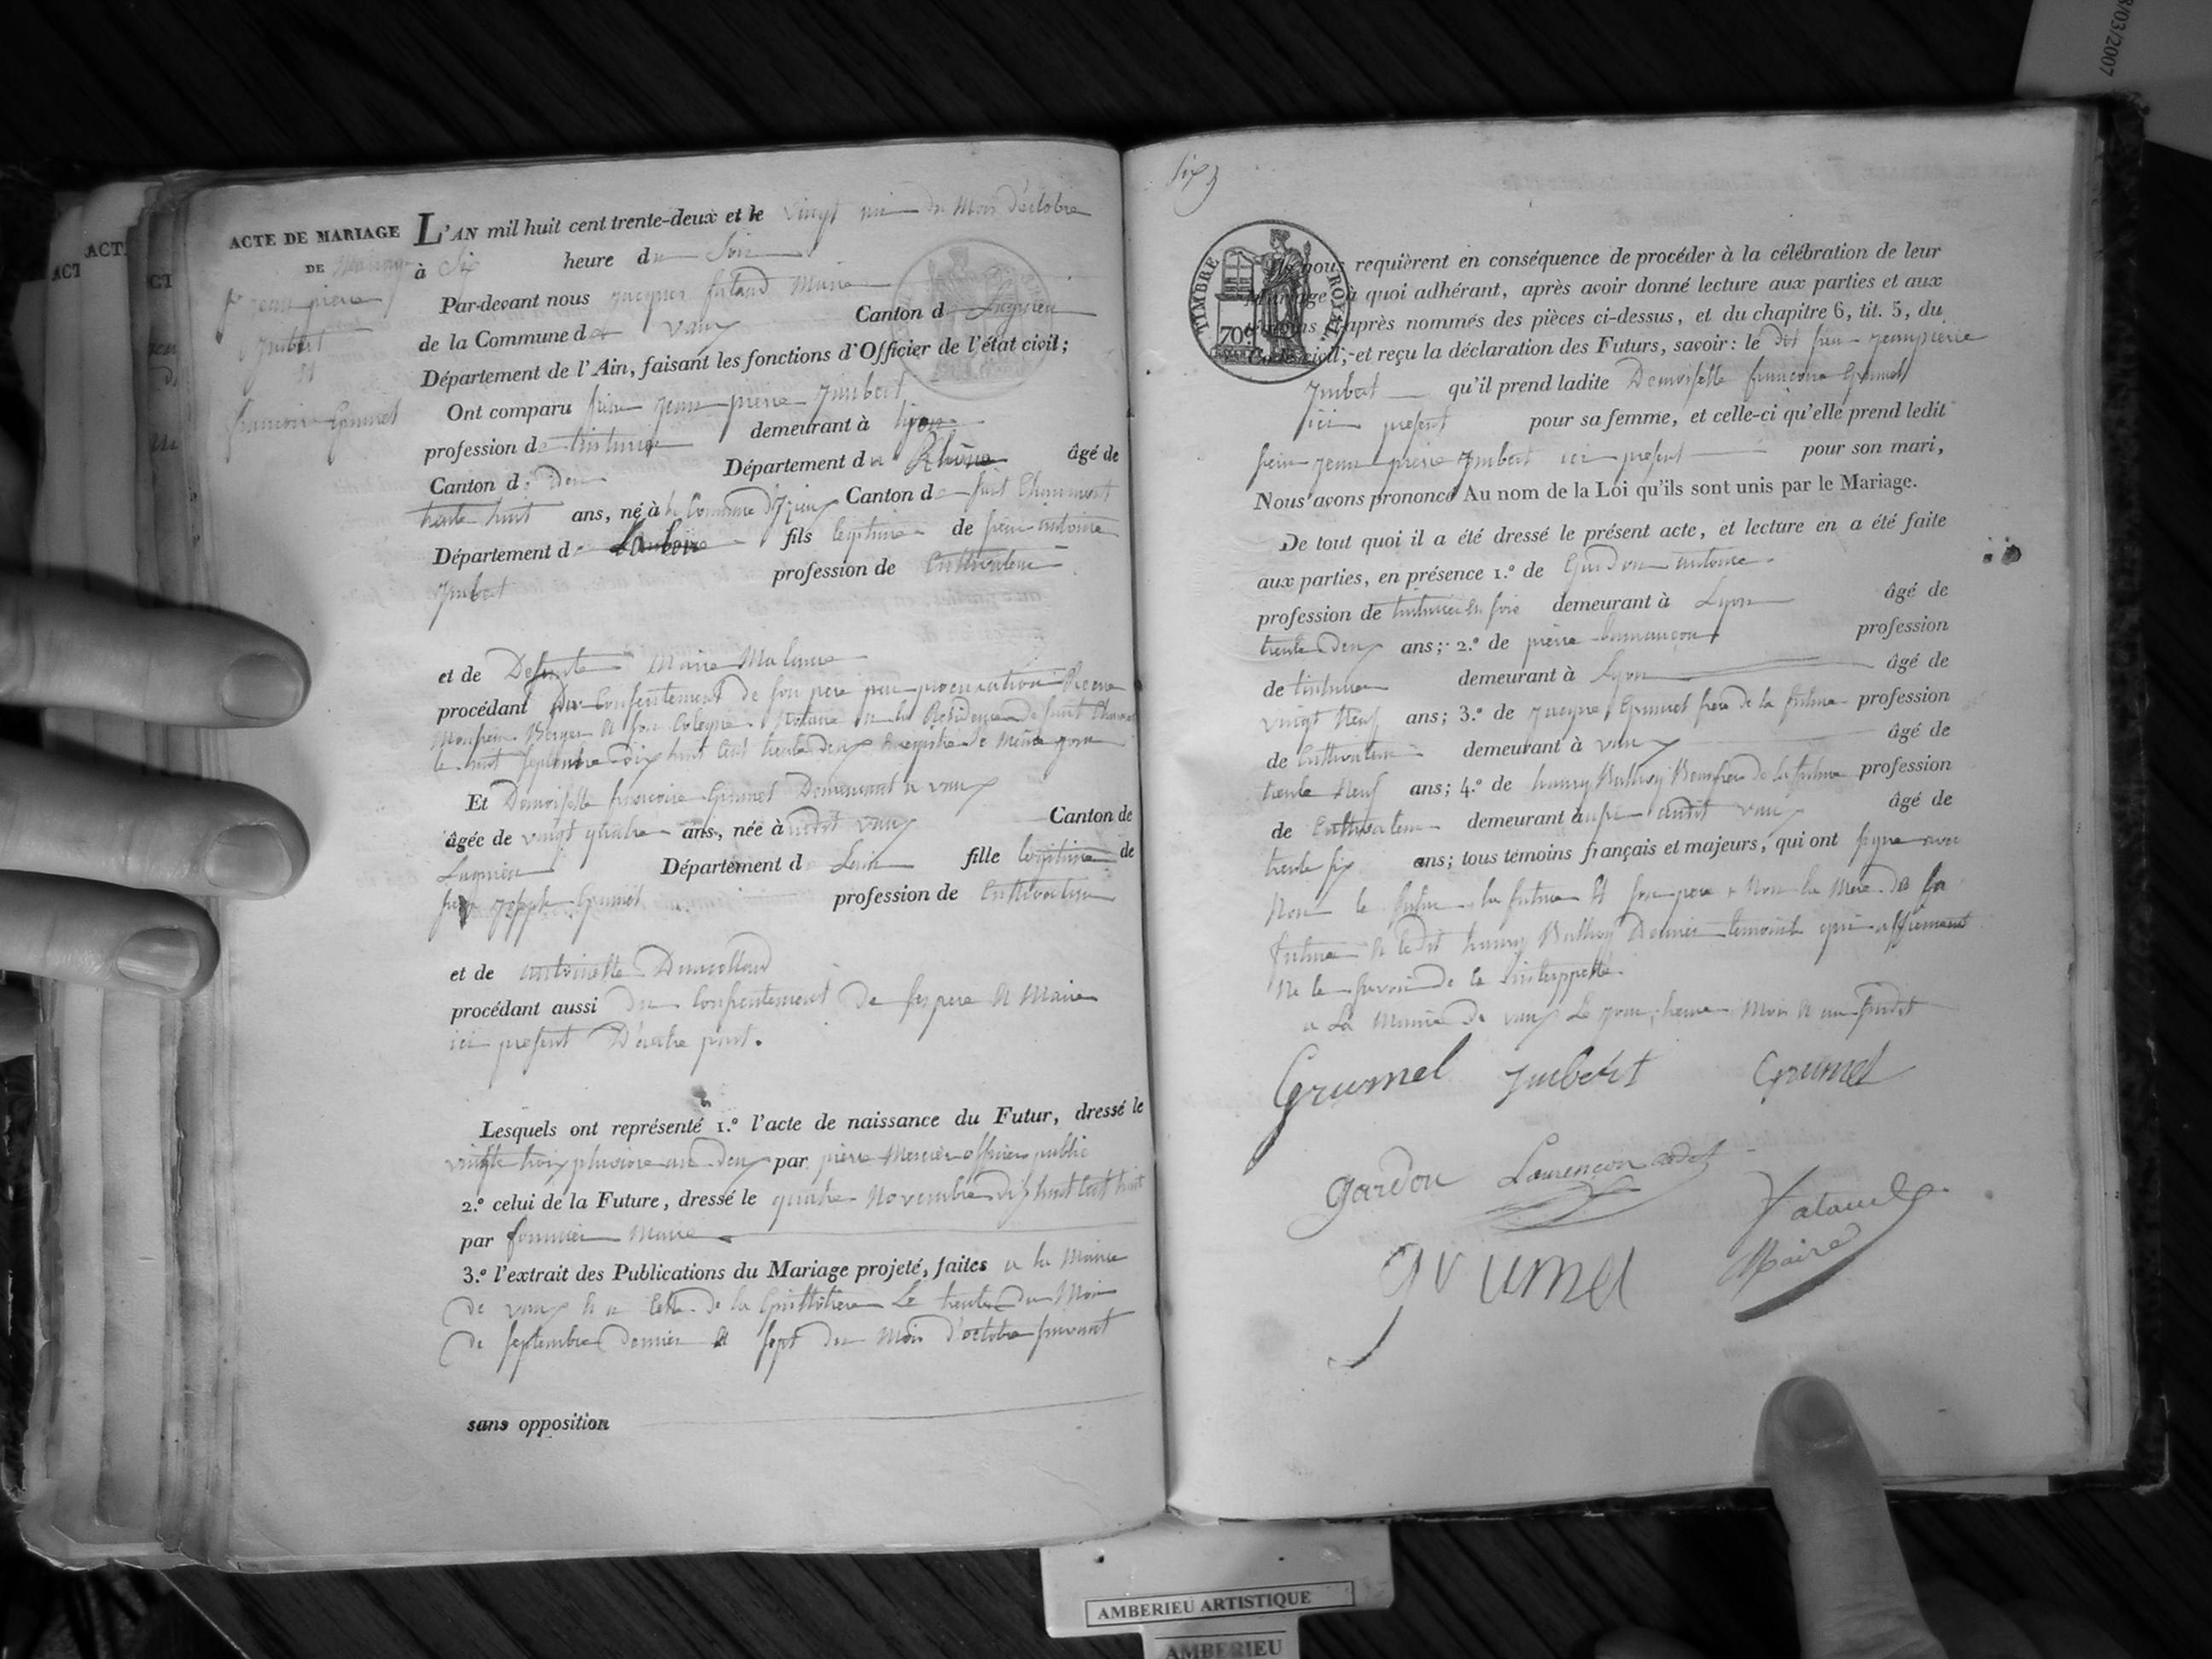 ACTE DE MARIAGE
DE Mariage
Sr jean pierre
jmbert
et
francoise Grumel
L'AN mil huit cent trente-deux et le vingt un du Mois d'octobre
à Six heure du Soir
Par-devant nous jacques fataud Maire
de la Commune de vaux Canton de Lagnieu
Département de l'Ain, faisant les fonctions d'Officier de l'état civil;
Ont comparu sieur jean pierre jmbert
profession de tinturier demeurant à lyon
Canton d Département du Rhône âgé de
trente huit ans, né à la Commune d'jzieux Canton de saint Chaumont
Département de La Loire fils legitime de sieur antoine
jmbert profession de Cultivateur
et de Defunte Marie
procédant Du Consentement de son pere par procuration Recue
Monsieur Berger et son Colegue Notaire a la Residence de saint Chaumont
le septembre Dix huit Cent trente deux enregistre le même jour
Et Demoiselle francoise Grumel Demeurant a vaux
âgée de vingt quatre ans, née à audit vaux Canton de
Lagnieu Département de Lain fille legitime de
joseph Grumel profession de Cultivateur
et de antoinette
procédant aussi du Consentement de ses pere et Maire
ici present D'autre part.
Lesquels ont représenté 1.º l'acte de naissance du Futur, dressé le
vingte trois pluviose an deux par pierre Mercier officier public
2.º celui de la Future, dressé le quatre Novembre dix huit Cent huit
par fournier Maire
3.º l'extrait des Publications du Mariage projeté, faites a la Mairie
de vaux et a Celle de la Guillotiere Le trente du Mois
de septembre dernier et sept du Mois d'octobre suivant
sans opposition
six
TIMBRE ROYAL
70c
Ils nous requièrent en conséquence de procéder à la célébration de leur
Mariage à quoi adhérant, après avoir donné lecture aux parties et aux
témoins ci-après nommés des pièces ci-dessus, et du chapitre 6, tit. 5, du
Code civil; et reçu la déclaration des Futurs, savoir: le dit sieur jean pierre
jmbert qu'il prend ladite Demoiselle francoise Grumel
ici present pour sa femme, et celle-ci qu'elle prend ledit
sieur jean pierre jmbert ici present pour son mari,
Nous avons prononcé Au nom de la Loi qu'ils sont unis par le Mariage.
De tout quoi il a été dressé le présent acte, et lecture en a été faite
aux parties, en présence 1.º de Gardon antoine
profession de tinturier en soie demeurant à Lyon âgé de
trente deux ans; 2.º de pierre profession
de tinturier demeurant à Lyon âgé de
vingt Neuf ans; 3.º de jacque Grumel frere de la future profession
de Cultivateur demeurant à vaux âgé de
trente Neuf ans; 4.º de Beaufrere de la future profession
de Cultivateur demeurant audit vaux âgé de
trente six ans; tous témoins français et majeurs, qui ont signe avec
Nous le futur la future et son pere Non la Mere de la
future et le dit Dernier temoint qui affirment
Ne le savoir de ce interppelle.
a La Mairie de vaux Le jour, heure Mois et an susdit
Grumel jmbert Grumel
gardon Laurencon cadet
fataud
Maire
grumel
8/03/2007
AMBERIEU ARTISTIQUE
AMBERIEU
ACT
ACT